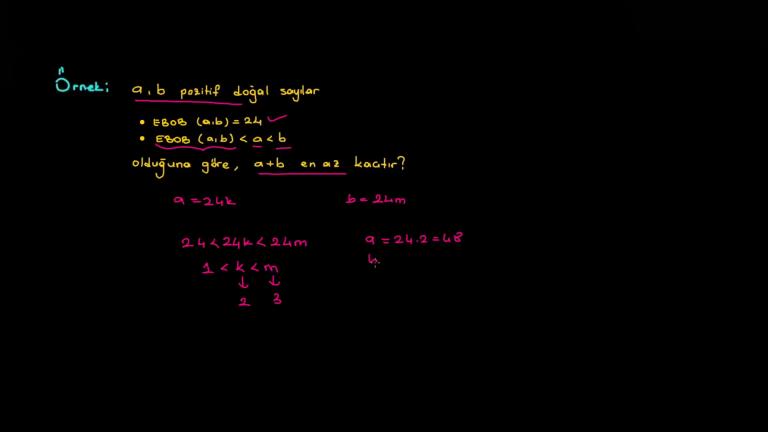 Örnek:
a, b pozitif doğal sayılar
• EBOB (a,b) = 24 ✓
• EBOB (a,b) < a < b
olduğuna göre, a+b en az kaçtır?
a = 24k b = 24m
24 < 24k < 24m a = 24.2 = 48
1 < k < m b
2 3